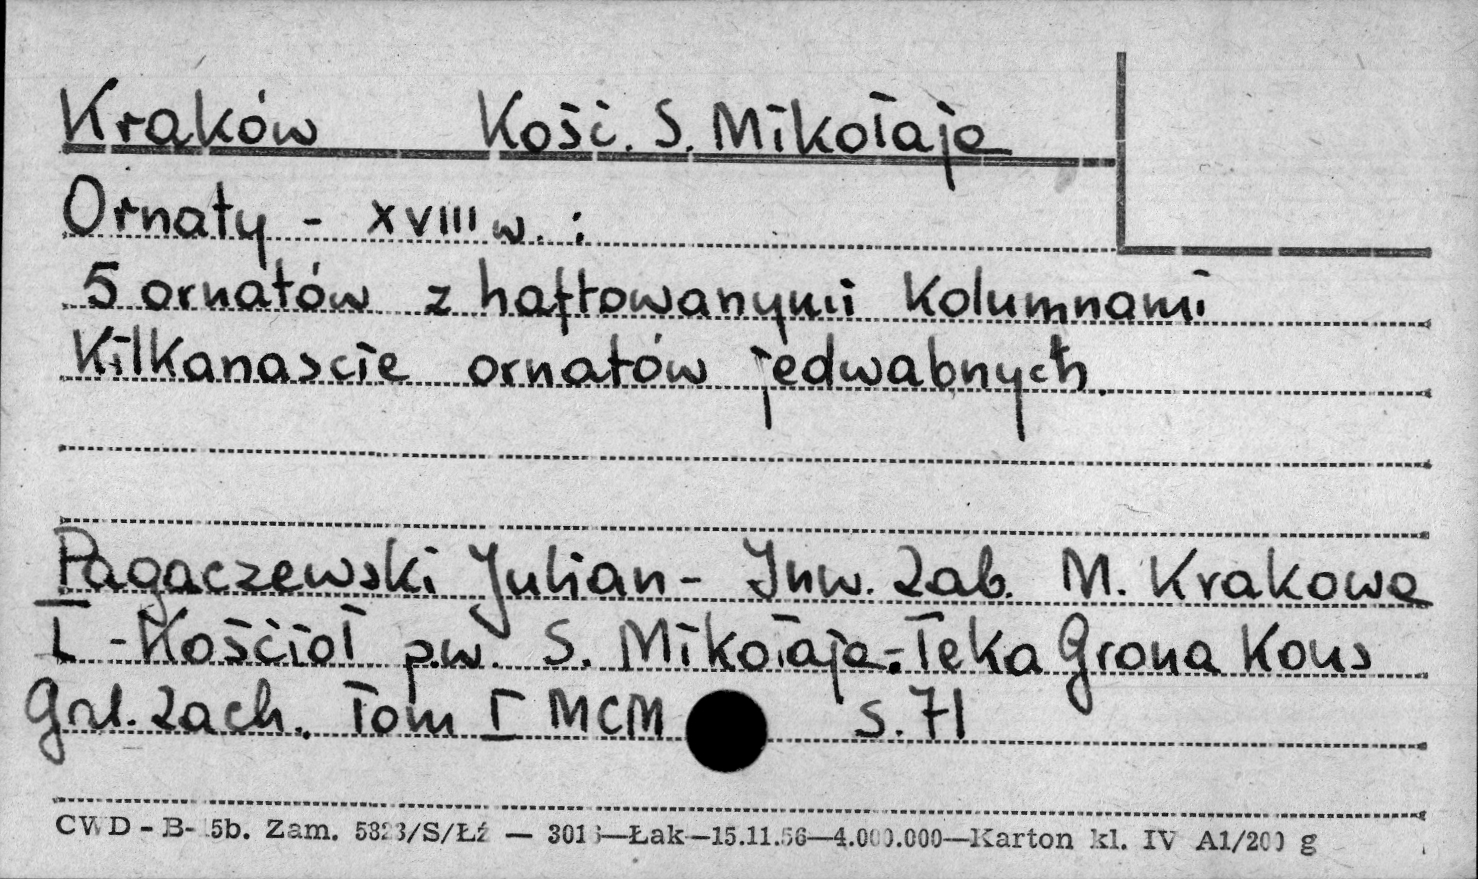 Kraków Kość. S. Mikołaja
Ornaty - XVIII w. :
5 ornatów z haftowanymi Kolumnami
Kilkanascie ornatów jedwabnych.
Pagaczewski Julian - Inw. Zab. M. Krakowa
I - Kościoł p.w. S. Mikołaja - Teka Grona Kons
Gal. Zach. Tom I MCM s. 71
CWD - B- 5b. Zam. 5823/S/Łź — 3013—Łak—15.11.56—4.000.000—Karton kl. IV A1/200 g